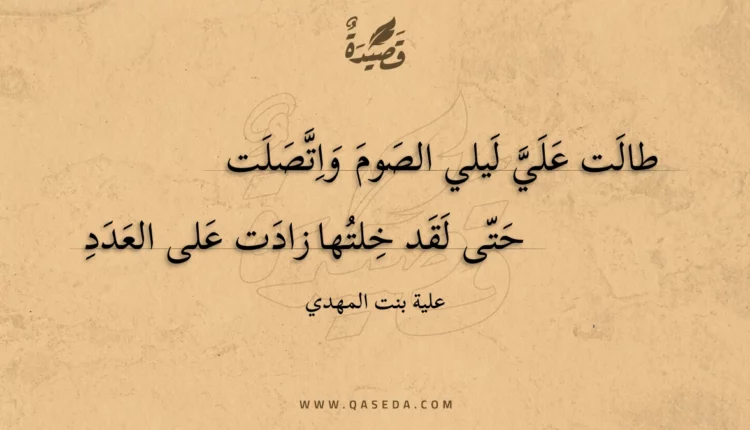 قَصِيْدَةٌ
طالَت عَلَيَّ لَيلي الصَومَ وَاِتَّصَلَت
حَتّى لَقَد خِلتُها زادَت عَلى العَدَدِ
علية بنت المهدي
WWW.QASEDA.COM